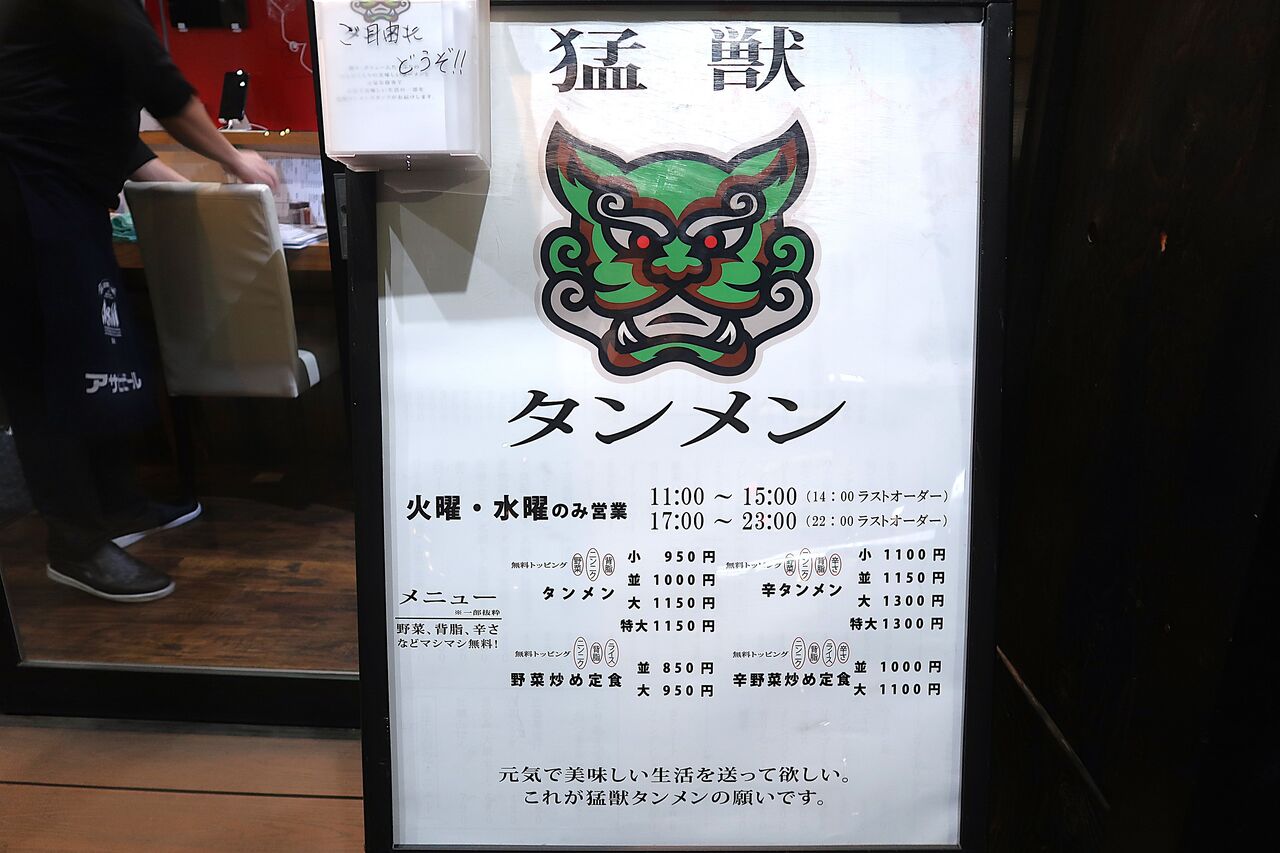 ご自由に
どうぞ!!
猛獣
タンメン
火曜・水曜のみ営業
11:00 ～ 15:00 (14:00ラストオーダー)
17:00 ～ 23:00 (22:00ラストオーダー)
メニュー
※一部抜粋
野菜、背脂、辛さ
などマシマシ無料!
無料トッピング 野菜 ニンニク 背脂
タンメン
小 950円
並 1000円
大 1150円
特大 1150円
無料トッピング 野菜 ニンニク 背脂 辛さ
辛タンメン
小 1100円
並 1150円
大 1300円
特大 1300円
無料トッピング ニンニク 背脂 ライス
野菜炒め定食
並 850円
大 950円
無料トッピング ニンニク 背脂 ライス 辛さ
辛野菜炒め定食
並 1000円
大 1100円
元気で美味しい生活を送って欲しい。
これが猛獣タンメンの願いです。
アサヒビール